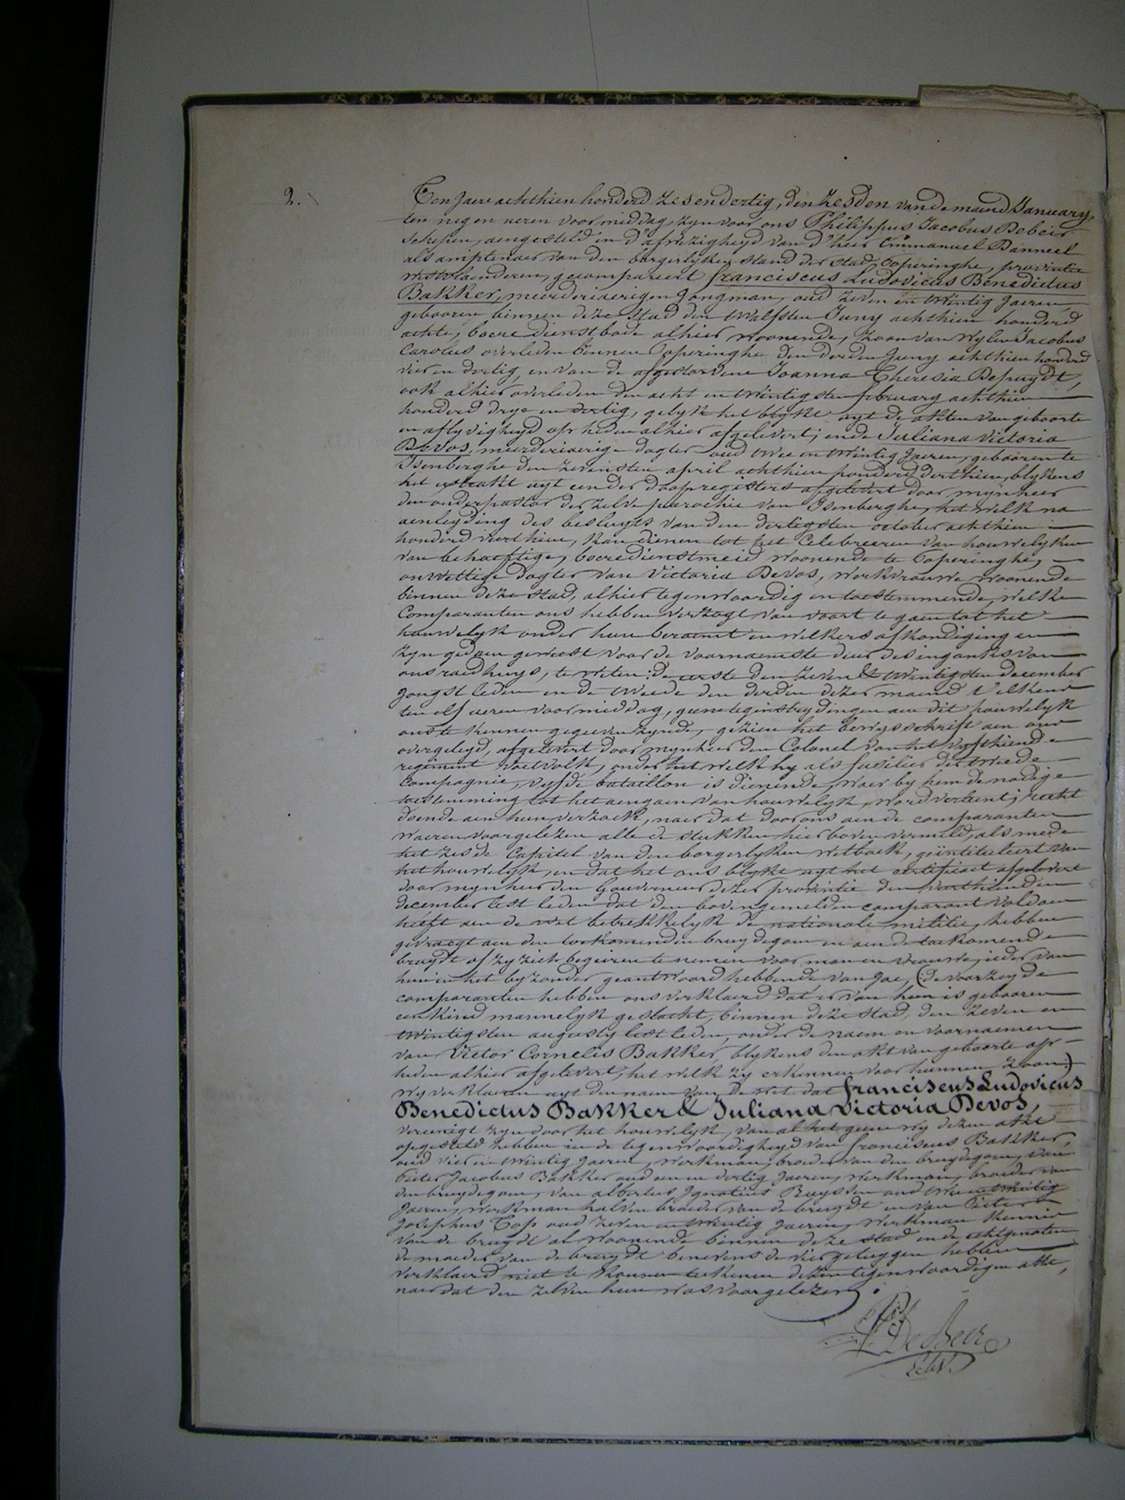 2.
Ten jaere achthien honderd zesendertig, den zesden van de maend January,
ten negen ueren voormiddag, zyn voor ons Philippus Jacobus Debeir
Schepen, aengesteld in d'afwezigheyd van d'heer Emmanuel Danneel
als amptenaer van den borgerlyken stand der Stad Poperinghe, provintie
Westvlaenderen, gecompareert franciscus Ludovicus Benedictus
Bakker, meerderjaerigen Jongman, oud zeven en twintig Jaeren,
gebooren binnen deze Stad den twalfsten Juny achthien honderd
achte, boere dienstbode alhier woonende, zoon van wylen Jacobus
Carolus overleden binnen Poperinghe den derden Juny achthien honderd
vier en dertig, en van de afgestorvene Joanna Theresia Depuydt,
ook alhier overleden den acht en twintigsten february achthien
honderd drye en dertig, gelyk het blykt uyt de akten van geboorte
en aflyvigheyd op heden alhier afgelevert; ende Juliana Victoria
Devos, meerderjaerige dogter oud twee en twintig Jaeren, gebooren te
Isenberghe den zevensten april achthien honderd derthien, blykens
het extrakt uyt een der doopregisters afgelevert door mynheer
den onderpastor der zelve parochie van Isenberghe, het welk na
aenleyding des besluyts van den dertigsten october achthien
honderd veerthien, kan dienen tot het celebreeren van houwelyken
van behoeftige, boeredienstmeid woonende te Poperinghe,
onwettige dogter van Victoria Devos, werkvrouwe woonende
binnen deze stad, alhier tegenwoordig en toestemmende, welke
Comparanten ons hebben verzogt van voort te gaen tot het
houwelyk onder hun beraemt en welkers afkondiging en
zyn gedaen geweest voor de voornaemste deur des ingangs van
ons raedhuys, te weten: de eerste den zeven en twintigsten december
Jongst leden en de tweede den derden dezer maend t'elkens
ten elf ueren voormiddag, geene tegenstrydingen aen dit houwelyk
ons te kennen gegeven zynde, gezien het bewysschrift aen ons
overgelegd, afgelevert door mynheer den Colonel van het vyfthiende
regiment voetvolk, onder het welk hy als fuselier der tweede
Compagnie, vyfde bataillon is dienende, waer by hem de noodige
toestemming tot het aengaen van houwelyk, word verleent; recht
doende aen hun verzoek, naer dat door ons aen de comparanten
waeren voorgelezen alle de stukken hier boven vermeld, als mede
het zesde Capitel van den borgerlyken wetboek, geïntituleert van
het houwelyk, en dat het ons blykt uyt het certificaet afgelevert
door mynheer den Gouverneur dezer provintie den
december lest leden dat den bovengemelden comparant voldaen
heeft aen de wet betrekkelyk de nationale militie, hebben
gevraegt aen den toekomenden bruydegom en aen de toekomende
bruydt of zy zich begeiren te nemen voor man en vrouwe, ieder van
hun in het byzonder geantwoord hebbende van Jae, (de voorzeyde
comparanten hebben ons verklaerd dat er van hun is gebooren
een kind mannelyk geslacht, binnen deze stad, den zeven en
twintigsten augusty lest leden, onder de naem en voornaemen
van Victor Cornelis Bakker, blykens den akt van geboorte op
heden alhier afgelevert, het welk zy erkennen voor hunnen zoon)
wy verklaeren uyt den naem van de wet dat franciscus Ludovicus
Benedictus Bakker & Juliana Victoria Devos,
vereenigt zyn door het houwelyk, van al het geene wy dezen akt
opgesteld hebben in de tegenwoordigheyd van franciscus Bakker,
oud vier en twintig Jaeren, werkman, broeder van den bruydegom, van
Pieter Jacobus Bakker oud een en dertig Jaeren, werkman, broeder van
den bruydegom, van albertus Ignatius Ruyssen oud twee en twintig
Jaeren, werkman halven broeder van de bruydt en van Pieter
Josephus Top oud zeven en twintig Jaeren, werkman kennis
van de bruydt al woonende binnen deze stad en de echtgenoten
de moeder van de bruydt benevens de vier getuygen hebben
verklaerd niet te konnen teekenen dezen tegenwoordigen akte,
naer dat den zelven hun was voorgelezen.
Ph. J. De Beir
Schep.